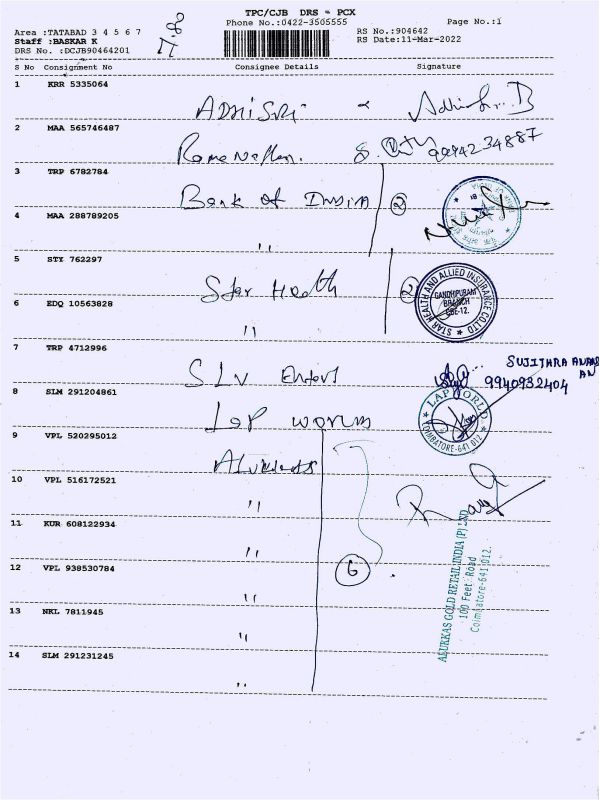 TPC/CJB DRS - PCX
Phone No.:0422-3505555
Page No.:1
Area :TATABAD 3 4 5 6 7
Staff :BASKAR K
DRS No. :DCJB90464201
RS No.:904642
RS Date:11-Mar-2022
S No Consignment No Consignee Details Signature
1 KRR 5335064 ADHISRI
2 MAA 565746487 9942 34887
3 TRP 6782784 Bank of India 2
4 MAA 288789205 "
5 STY 762297 Star Health 2
STAR HEALTH AND ALLIED INSURANCE CO.LTD
GANDHIPURAM
BRANCH
CBE-12.
6 EDQ 10563828 "
7 TRP 4712996 SLV
SUJITHRA ANAND
AN
9940932404
8 SLM 291204861 Lap world
LAP WORLD
COIMBATORE-641 012
9 VPL 520295012 Alukkas
10 VPL 516172521 "
11 KUR 608122934 "
12 VPL 938530784 " 6
13 NKL 7811945 "
14 SLM 291231245 "
ALUKKAS GOLD RETAIL INDIA (P) LTD
100 Feet Road
Coimbatore-641 012.